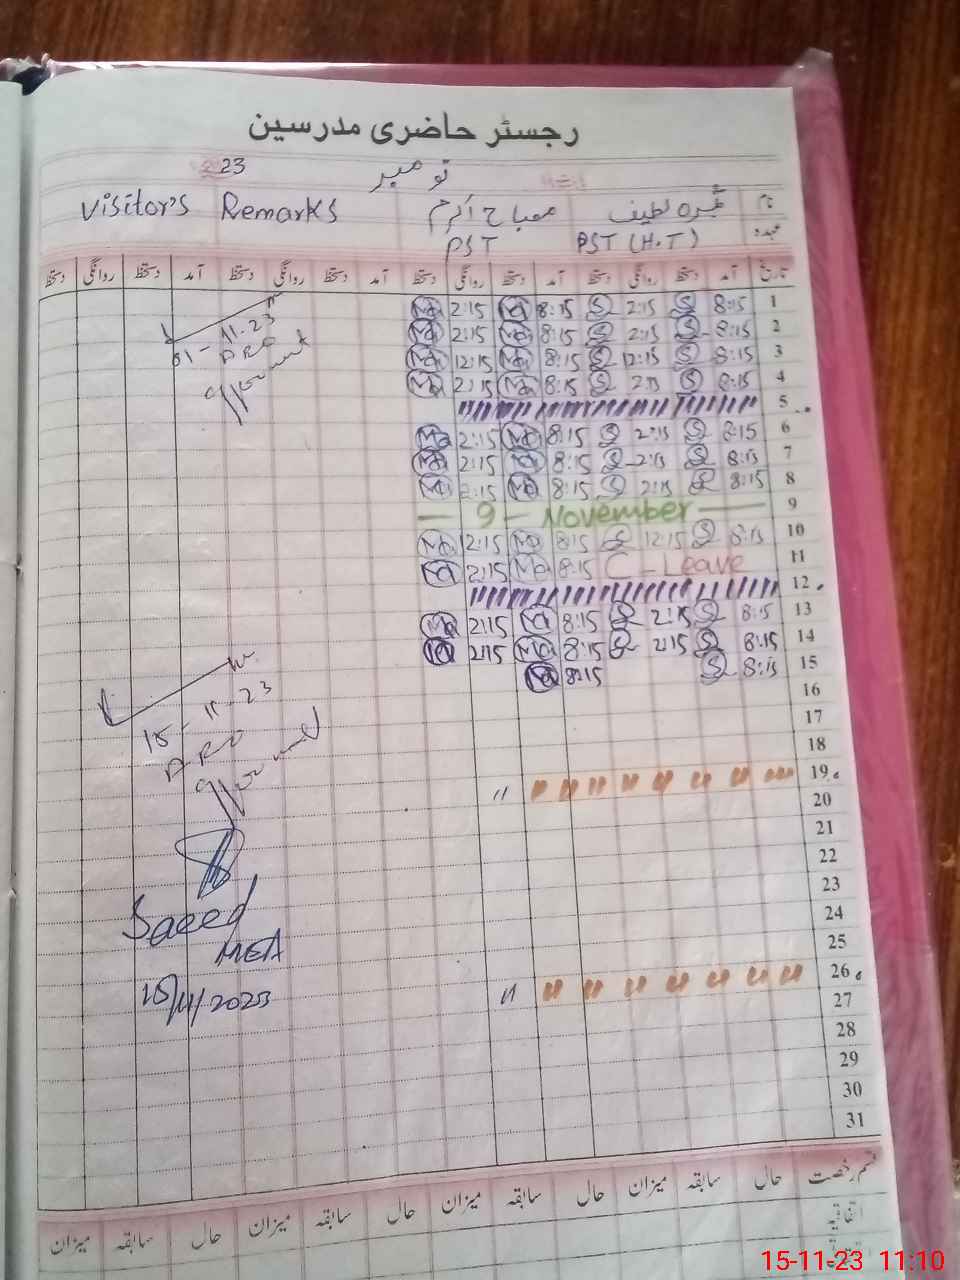 رجسٹر حاضری مدرسین
نومبر 2023
نام لطیف مصباح اکرم Visitor's Remarks
عہدہ PST (H.T) PST
تاریخ آمد دستخط روانگی دستخط آمد دستخط روانگی دستخط آمد دستخط روانگی دستخط آمد دستخط روانگی دستخط
1 8:15 2:15 8:15 2:15
2 8:15 2:15 8:15 2:15
3 8:15 12:15 8:15 12:15
4 8:15 2:15 8:15 2:15
5
6 8:15 2:15 8:15 2:15
7 8:15 2:15 8:15 2:15
8 8:15 2:15 8:15 2:15
9 — 9 — November —
10 8:15 12:15 8:15 12:15
11 C - Leave 8:15 2:15
12
13 8:15 2:15 8:15 2:15
14 8:15 2:15 8:15 2:15
15 8:15 8:15
16
17
18
19
20
21
22
23
24
25
26
27
28
29
30
31
01-11-23
15-11-23
Saeed
MEA
15/11/2023
قسم رخصت حال سابقہ میزان حال سابقہ میزان حال سابقہ میزان حال سابقہ میزان
اتفاقیہ
15-11-23 11:10